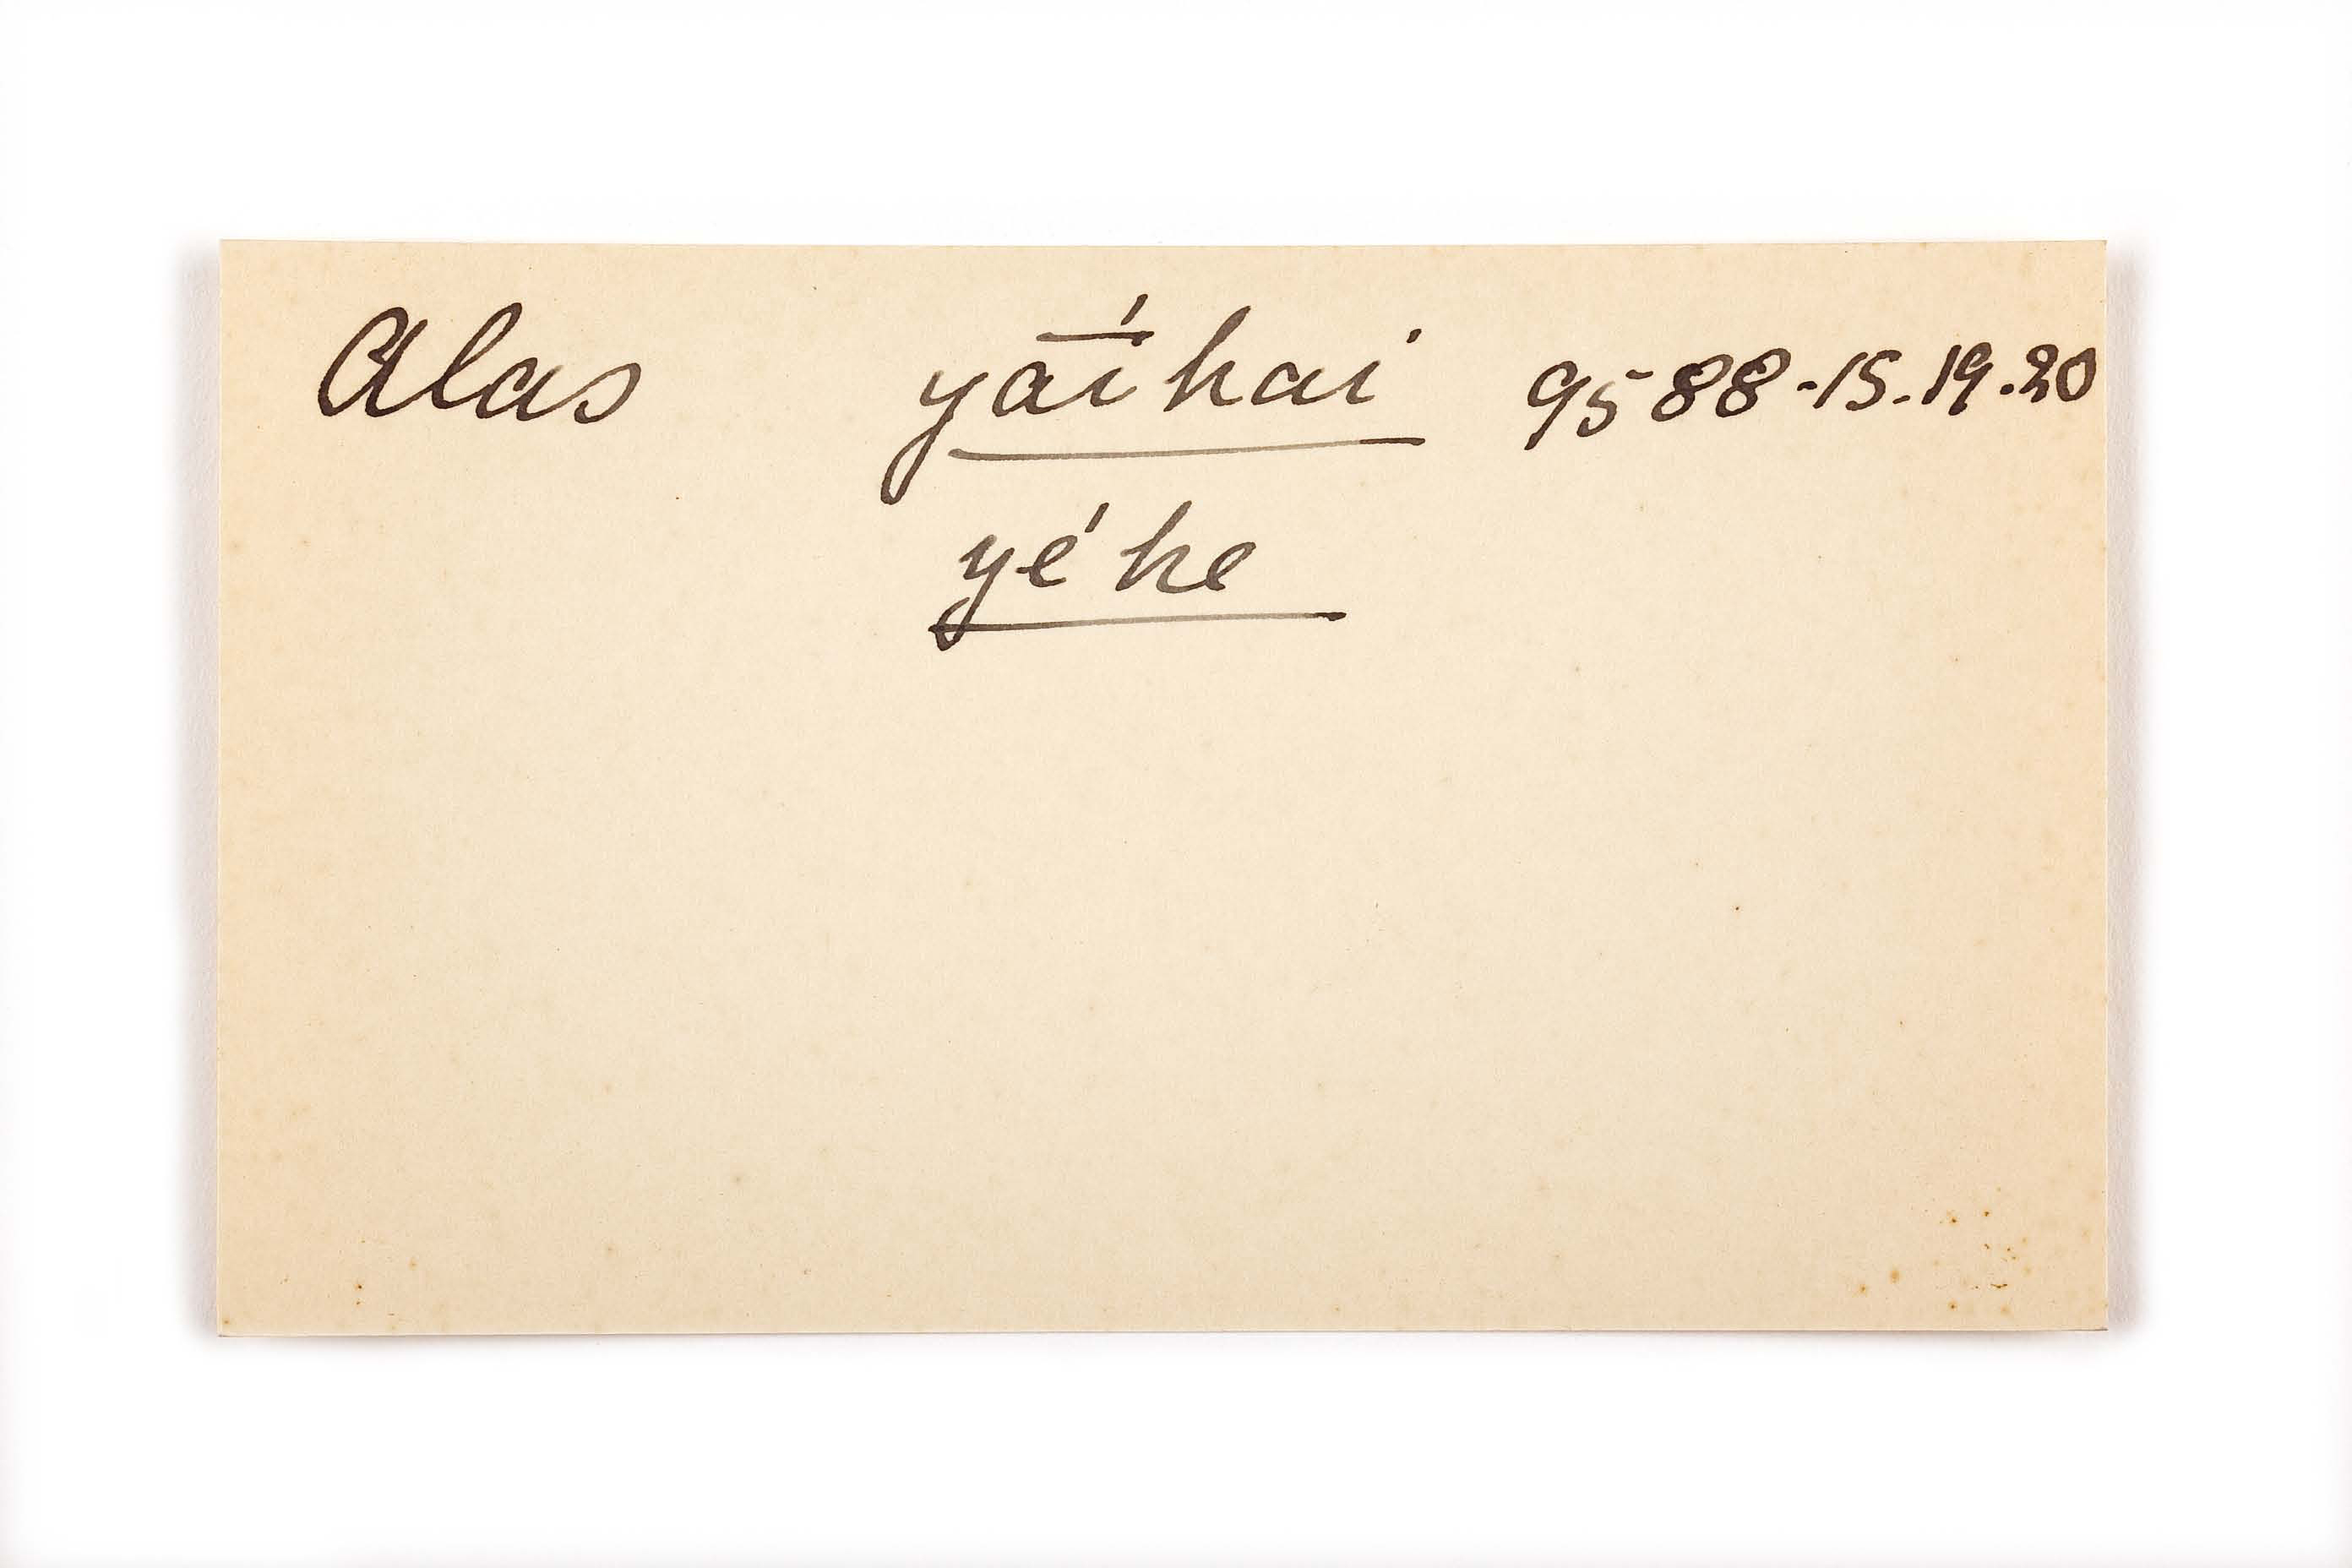 Alas yāí hai 9588-15.19.20
yé he